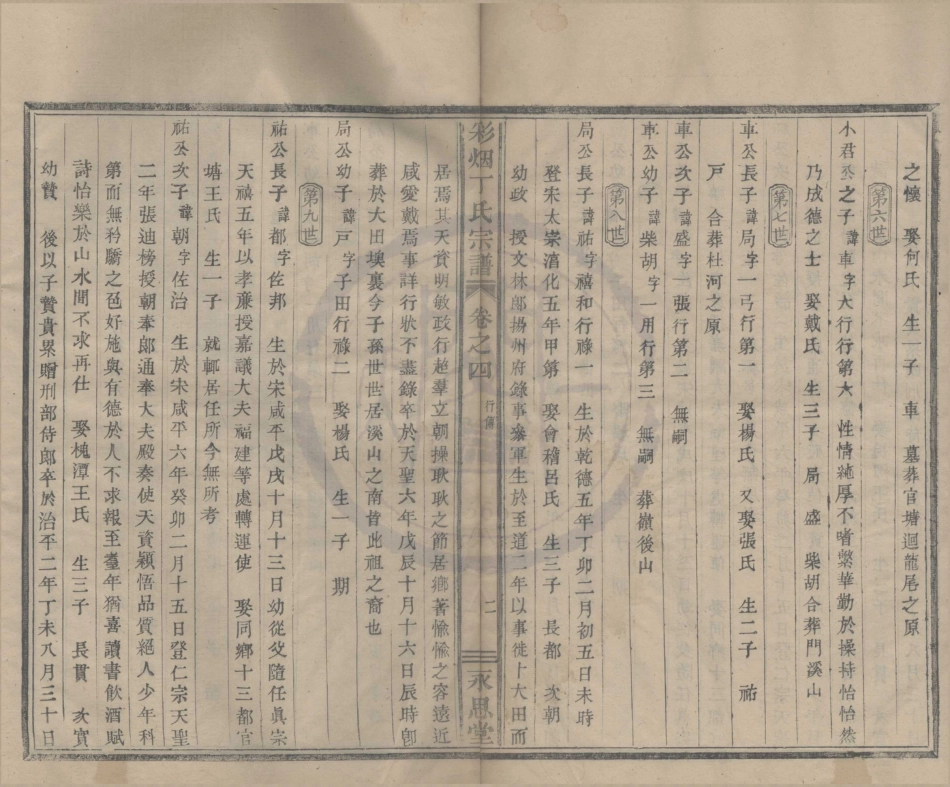 之懷　娶何氏　生一子　車　墓葬官塘迴龍尾之原
第六世
小君公之子諱車字大行行第六　性情純厚不嗜繁華勤於操持怡怡然
乃成德之士　娶戴氏　生三子　局　盛　柴胡合葬門溪山
第七世
車公長子諱局字一弓行第一　娶楊氏　又娶張氏　生二子　祐
戸　合葬杜河之原
車公次子諱盛字一張行第二　無嗣
車公幼子諱柴胡字一用行第三　無嗣　葬嶺後山
第八世
局公長子諱祐字禧和行祿一　生於乾德五年丁卯二月初五日未時
登宋太崇淯化五年甲第　娶會稽呂氏　生三子　長都　次朝
幼政　授文林郎揚州府錄事叅軍生於至道二年以事徙卜大田而
彩烟丁氏宗譜　卷之四　行傳　二　永思堂
居焉其天資明敏政行超羣立朝操耿耿之節居鄉著愉愉之容遠近
咸愛戴焉事詳行狀不盡錄卒於天聖六年戊辰十月十六日辰時卽
葬於大田墺裏今子孫世世居溪山之南皆此祖之裔也
局公幼子諱戸字子田行祿二　娶楊氏　生一子　期
第九世
祐公長子諱都字佐邦　生於宋咸平戊戌十月十三日幼從父隨任眞宗
天禧五年以孝亷授嘉議大夫福建等處轉運使　娶同鄉十三都官
塘王氏　生一子　就邨居任所今無所考
祐公次子諱朝字佐治　生於宋咸平六年癸卯二月十五日登仁宗天聖
二年張迪榜授朝奉郎通奉大夫殿奏使天資穎悟品質絕人少年科
第而無矜驕之色好施與有德於人不求報至耋年猶喜讀書飲酒賦
詩怡樂於山水間不求再仕　娶槐潭王氏　生三子　長貫　次實
幼贊　後以子贊貴累贈刑部侍郎卒於治平二年丁未八月三十日